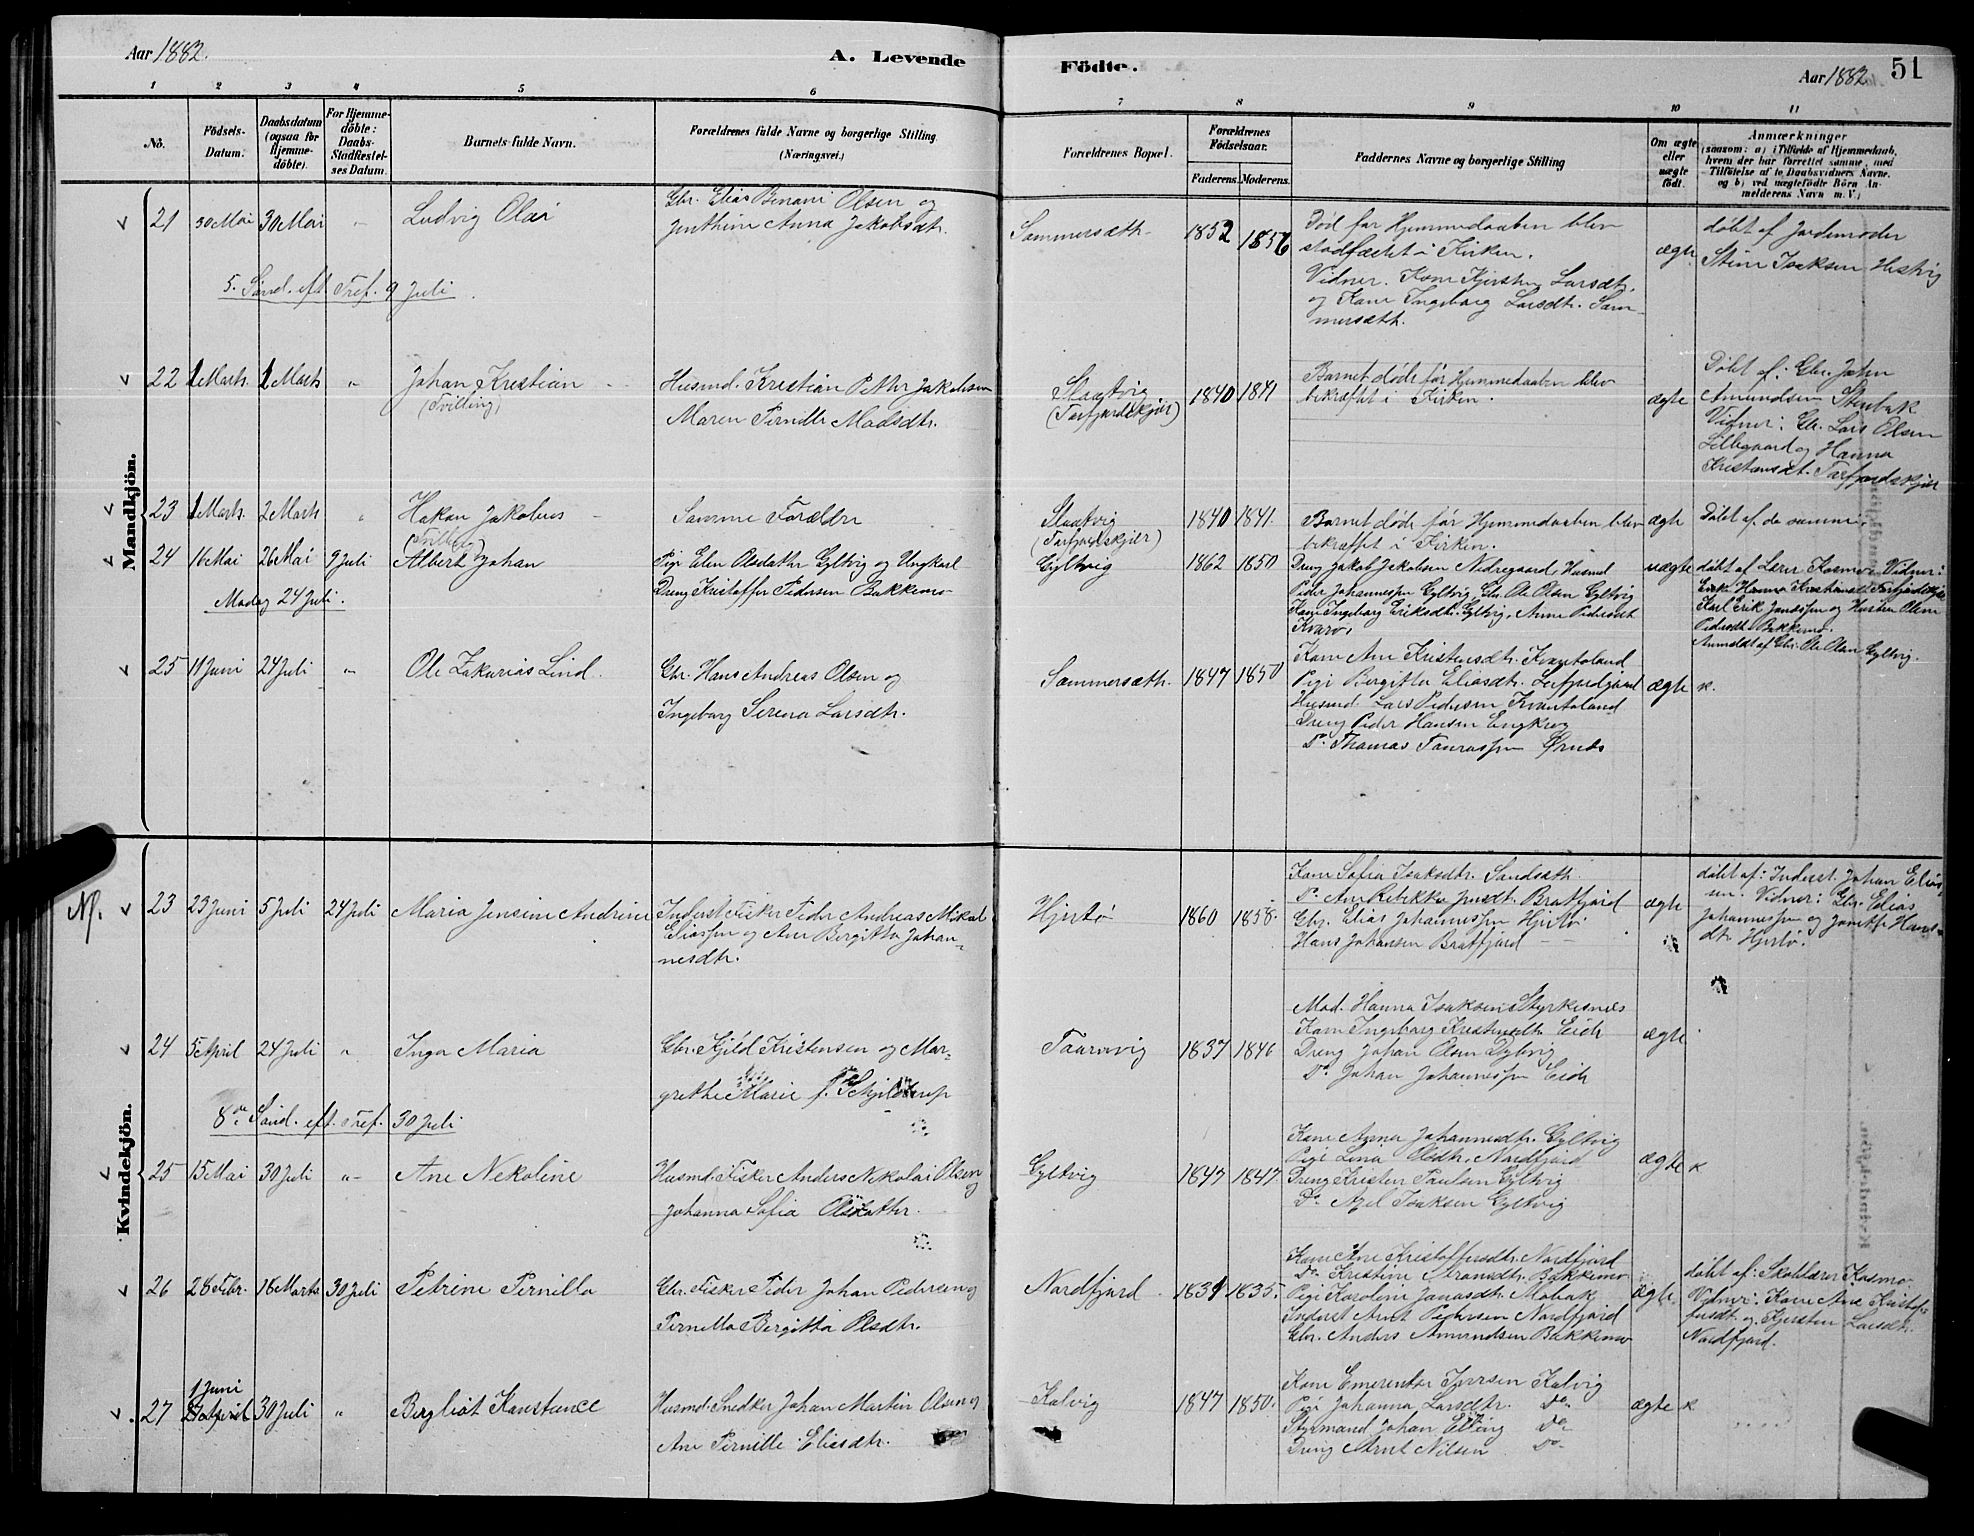 Aar 1882.
A. Levende
Födte.
Aar 1882
51
1 2 3 4 5 6 7 8 9 10 11
No.
Födsels-
Datum.
Daabsdatum
(ogsaa for
Hjemme-
döbte).
For Hjemme-
döbte:
Daabs-
Stadfæstel-
ses Datum.
Barnets fulde Navn.
Forældrenes fulde Navne og borgerlige Stilling
(Næringsvei.)
Forældrenes Bopæl.
Forældrenes
Födselsaar.
Faderens. Moderens.
Faddernes Navne og borgerlige Stilling
Om ægte
eller
uægte
födt.
Anmærkninger
(saasom: a) i Tilfælde af Hjemmedaab,
hvem der har forrettet samme, med
Tilföielse af to Daabsvidners Navne.
og b) ved uægtefödte Börn An-
melderens Navn m. V.)
Mandkjön.
21 30 Mai 30 Mai - Ludvig Olai
Gbr. Elias Benoni Olsen og
Jenthine Anna Jakobsdtr.
Sommersæth 1852 1856
Död før Hjemmedaaben blev
stadfæstet i Kirken.
Vidner. Kone Kjersten Larsdtr.
og Kone Ingeborg Larsdtr. Som-
mersæth.
ægte
döbt af Jordemoder
Stine Isaksen Hestvig
5. Sönd. eft. Tref. 9 Juli.
22 1 Marts. 1 Marts " Johan Kristian
(Tvilling)
Husmd. Kristian Petter Jakobsen
Maren Pernille Madsdtr.
Slaatvig
(Tarfjordskjær)
1840 1841
Barnet döde før Hjemmedaaben blev
bekræftet i Kirken.
ægte
Döbt af: Gbr. John
Amundsen Stenbak
Vidner: Gbr. Lars Olsen
Lillegaard og Hanna
Kristensdt. Tarfjordskjær
23 1 Marts. 2 Marts " Hakon Jakobus
(Tvilling)
Samme Forældre
Slaatvig
(Tarfjordskjær)
1840 1841.
Barnet döde før Hjemmedaaben blev
bekræftet i Kirken.
ægte
Döbt af de samme.
24 16 Mai 26 Mai 9 Juli Albert Johan
Pige Elen Olsdatter Gyltvig og Ungkarl
Dreng Kristoffer Pedersen Bakkemo
Gyltvig 1862 1850
Dreng Jakob Jakobsen Nedregaard Husmd
Peder Johannessen Gyltvig, Gbr. Ole Olsen Gyltvig
Kone Ingeborg Eriksdtr. Gyltvig, Anne Pedersdt
Kvarv,
uægte
döbt af Lærer Kosmo. Vidner:
Enke Hanna Kristiansdt. Tarfjordskjær
Karl Erik Jonassen og Hustru Oline
Pedersdtr. Bakkemo.
Anmeldt af Gbr. Ole Olsen Gyltvig.
Mandag 24 Juli.
25 11 Juni 24 Juli " Ole Zakarias Lind.
Gbr. Hans Andreas Olsen og
Ingeborg Serena Larsdtr.
Sommersæth. 1847 1850
Kone Ane Kristensdtr. Kvantoland
Pige Bergitta Eliasdtr.
Husmd. Lars Pedersen Kvantoland
Dreng Peder Hansen Engkrog
Do. Thomas
ægte k.
Kvindekjön.
N.
23 23 Juni 5 Juli 24 Juli Maria Jensine Andrine
Inderst Fisker Peder Andreas Mikal
Eliassen og Ane Bergitta Johan-
nesdtr.
Hjertö 1860 1858.
Kone Sofia Isaksdtr. Sandsæth
Do. Ane Rebekka Bratfjord
Gbr. Elias Johannessen Hjertö
Hans Johansen Bratfjord
ægte
döbt af: Inderst. Johan Elias-
sen. Vidner: Gbr. Elias
Johannessen og Hans-
dtr. Hjertö.
24 5 April 24 Juli " Inga Maria
Gbr. Kjeld Kristensen og Mar-
grethe Marie f. Schjelderup
Taarnvig 1837 1846
Mad. Hanna Isaksen Styrkesnes
Kone Ingeborg Kristensdtr. Eide
Dreng Johan Olsen Dybvig
Do. Johan Johannessen Eide
ægte
8de Sönd. eft. Tref. 30 Juli
25 15 Mai 30 Juli " Ane Nekoline
Husmd. Fisker Anders Nikolai Olsen
og
Johanna Sofia Olsdatter.
Gyltvig 1847 1847.
Kone Anna Johannesdtr. Gyltvig
Pige Lina Olsdtr. Nordfjord
Dreng Kristen Paulsen Gyltvig
Do. Axel Isaksen Gyltvig
ægte k
26 28 Febr. 18 Marts 30 Juli Petrine Pernilla
Gbr. Fisker Peder Johan Pedersen og
Pernilla Bergitta Olsdtr.
Nordfjord 1831 1835.
Kone Ane Kristoffersdtr. Nordfjord
Do. Kristine Bakkemo
Pige Karoline Jonasdtr. Mobak
Inderst Arnt Pedersen Nordfjord
Gbr. Anders Amundsen Bakkemo
ægte
döbt af: Skolelærer Kosmo
Vidner: Kone Ane Kristof-
fersdt. og Kjersten Larsdtr.
Nordfjord.
1 Juni
27 30 Juli " Bergliot Konstance
Husmd. Snedker Johan Martin Olsen og
Ane Pernille Eliasdtr.
Kalvig 1847 1850.
Kone Emerentse Kalvig
Pige Johanna Larsdtr. Do
Styrmand Johan Elling Do
Dreng Arnt Nilsen Do
ægte k